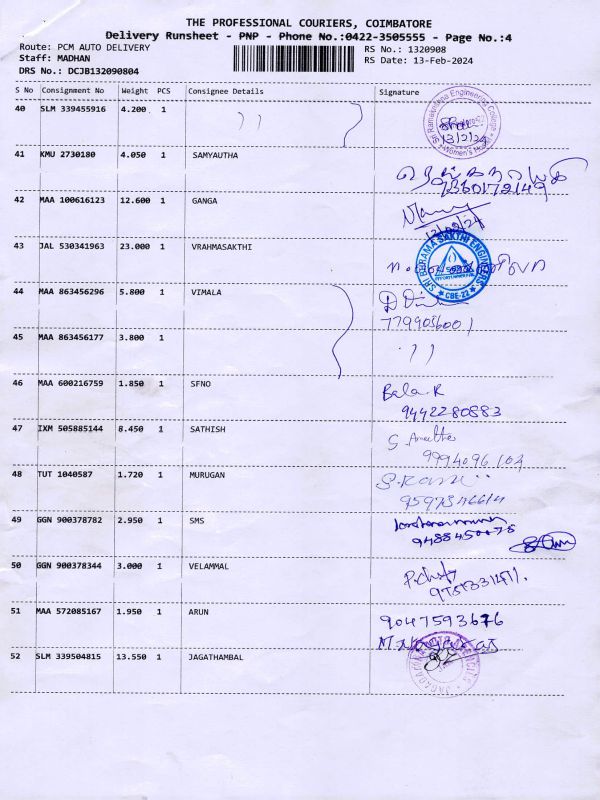 THE PROFESSIONAL COURIERS, COIMBATORE
Delivery Runsheet - PNP - Phone No.:0422-3505555 - Page No.:4
Route: PCM AUTO DELIVERY RS No.: 1320908
Staff: MADHAN RS Date: 13-Feb-2024
DRS No.: DCJB132090804
S No Consignment No Weight PCS Consignee Details Signature
40 SLM 339455916 4.200 1 ))
Sri Ramakrishna Engineering College
Women's
13/2/24
41 KMU 2730180 4.050 1 SAMYAUTHA
9360172149
42 MAA 100616123 12.600 1 GANGA
43 JAL 530341963 23.000 1 VRAHMASAKTHI
SRI BHRAMA SAKTHI ENGINEERS
* CBE-22 *
44 MAA 863456296 5.800 1 VIMALA
45 MAA 863456177 3.800 1 ))
46 SFNO MAA 600216759 1.850 1 Bala.R
9442280883
47 IXM 505885144 8.450 1 SATHISH
9994096103
48 TUT 1040587 1.720 1 MURUGAN
49 GGN 900378782 2.950 1 SMS
9488450075
50 GGN 900378344 3.000 1 VELAMMAL
51 MAA 572085167 1.950 1 ARUN 9047593676
M. Nagaraj
52 SLM 339504815 13.550 1 JAGATHAMBAL